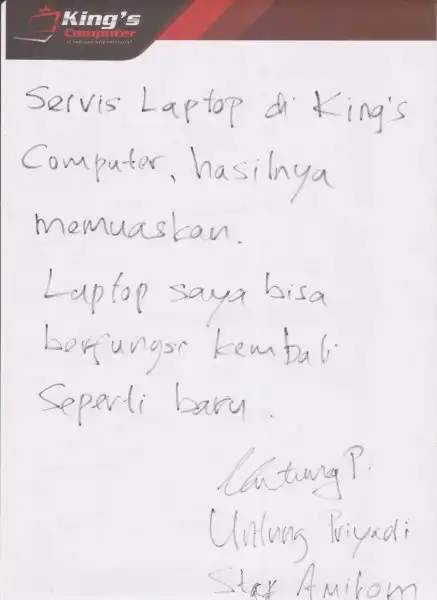 King's
Computer
Servis Laptop di King's
Computer, hasilnya
memuaskan.
Laptop saya bisa
berfungsi kembali
Seperti baru.
Untung P.
Untung Priyadi
Star Amikom